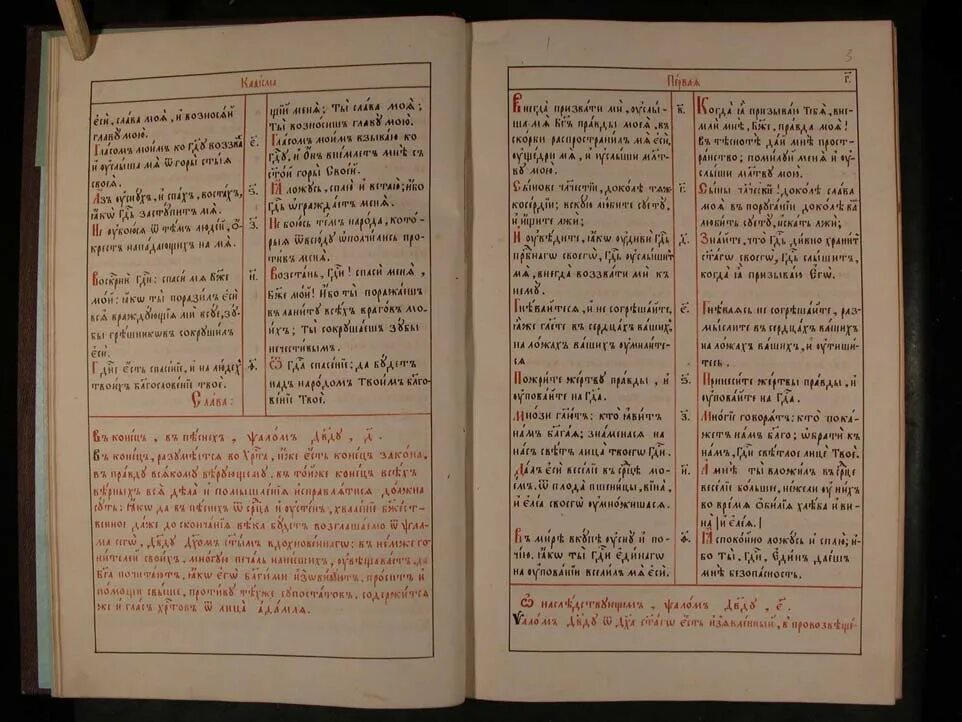 Каѳісма
є҆сѝ, сла́ва моѧ̀, и҆ возносѧ́й
главꙋ̀ мою̀.
Гла́сомъ мои́мъ ко гдⷭ҇ꙋ воззва́хъ
и҆ ᲂу҆слы́ша мѧ̀ ѿ горы̀ ст҃ы́ѧ
своеѧ̀.
А҆́зъ ᲂу҆снꙋ́хъ, и҆ спа́хъ, воста́хъ,
ꙗ҆́кѡ гдⷭ҇ь застꙋ́питъ мѧ̀.
Не ᲂу҆бою́сѧ ѿ те́мъ люде́й, ѻ҆́-
крестъ напада́ющихъ на мѧ̀.
Воскр҃нѝ гдⷭ҇и: спаси́ мѧ бж҃е
мо́й: ꙗ҆́кѡ ты̀ порази́лъ є҆сѝ
всѧ̑ враждꙋ́ющыѧ мѝ всꙋ́е, зꙋ́-
бы грѣ́шникѡвъ сокрꙋши́лъ
є҆сѝ.
Гдⷭ҇не є҆́сть спасе́нїе, и҆ на лю́дехъ
твои́хъ блгⷭ҇ове́нїе твоѐ.
Сла́ва:
є҃.
ѕ҃.
з҃.
и҃.
ѳ҃.
щі́й менѧ̀; ты̀ сла́ва моѧ̀;
ты̀ возно́сишь главꙋ̀ мою̀.
Гла́сомъ мои́мъ взыва́ю ко
гдⷭ҇ꙋ, и҆ ѻ҆́нъ внима́етъ мнѣ̀ съ
ст҃о́й горы̀ свое́й.
ложꙋ́сь, сплю̀ и҆ встаю̀; и҆́бо
гдⷭ҇ь ѡ҆гражда́етъ менѧ̀.
Не бою́сь те́мъ наро́да, кото́-
рыѧ ѿвсю́дꙋ ѡ҆полчи́лись про́-
тивъ менѧ̀.
Возста́нь, гдⷭ҇и! спасѝ менѧ̀,
бж҃е мо́й! и҆́бо ты̀ поража́ешь
въ лани́тꙋ всѣ́хъ врагѡ́въ мо-
и҆́хъ; ты̀ сокрꙋша́ешь зꙋ́бы
нечести́вымъ.
Ѿ гдⷭ҇а спасе́нїе; да бꙋ́детъ
надъ наро́домъ твои́мъ благ҇о-
ве́нїе твоѐ.
Въ коне́цъ, въ пѣ́снехъ, ѱало́мъ дв҃дꙋ, д҃.
Въ коне́цъ, разꙋмѣ́етсѧ во хрⷭ҇та̀, и҆́же є҆́сть коне́цъ зако́на,
въ пра́вдꙋ всѧ́комꙋ вѣ́рꙋющемꙋ. въ то́йже коне́цъ всѣ́хъ
вѣ́рныхъ всѧ̑ дѣла̀ и҆ помышлє́нїѧ и҆справлѧ́тисѧ должна̀
сꙋ́ть: ꙗ҆́кѡ да въ пѣ́снехъ ѿ се́рдца и҆ ᲂу҆сте́нъ, хвале́нїе бж҃е́ст-
венно да́же до сконча́нїѧ вѣ́ка бꙋ́детъ возглаша́емо ѿ ѱал-
ма̀ сегѡ̀, дв҃дꙋ дх҃омъ ст҃ы́мъ вдохнове́ннагѡ: въ не́мже го-
ни́телей свои́хъ, мно́гꙋю печа́ль нане́сшихъ, ᲂу҆вѣщава́етъ, да
бг҃а почита́ютъ, ꙗ҆́кѡ є҆гѡ̀ бл҃ги́ми и҆з̾ѡби́лꙋютъ, про́ситъ и҆
по́мощи свы́ше, проти́вꙋ тѣ́хже сꙋпоста́тѡвъ. содержи́тсѧ
же и҆ гла́съ хрⷭ҇то́въ ѿ лица̀ а҆да́млѧ.
Пе́рваѧ
г҃.
3
Внегда̀ призва́ти мѝ, ᲂу҆слы́-
ша мѧ̀ бг҃ъ пра́вды моеѧ̀, въ
ско́рби распространи́лъ мѧ̀ є҆сѝ,
ᲂу҆ще́дри мѧ̀, и҆ ᲂу҆слы́ши мл҃т-
вꙋ мою̀.
Сы́нове чл҃вѣ́честїи, доко́лѣ тѧж-
косе́рдїи; вскꙋ́ю лю́бите сꙋетꙋ̀,
и҆ и҆́щите лжѝ;
И҆ ᲂу҆вѣ́дите, ꙗ҆́кѡ ᲂу҆дивѝ гдⷭ҇ь
прпⷣбнаго своего̀, гдⷭ҇ь ᲂу҆слы́шитъ
мѧ̀, внегда̀ воззва́ти мѝ къ
немꙋ̀.
Гнѣ́вайтесѧ, и҆ не согрѣша́йте,
ꙗ҆̀же глаго́лете въ сердца́хъ ва́шихъ,
на ло́жахъ ва́шихъ ᲂу҆мили́те-
сѧ
Пожри́те же́ртвꙋ пра́вды, и҆
ᲂу҆пова́йте на гдⷭ҇а.
Мно́зи глаго́лютъ: кто̀ ꙗ҆ви́тъ
на́мъ блага́ѧ; зна́менасѧ на
на́съ свѣ́тъ лица̀ твоегѡ̀ гдⷭ҇и.
Да́лъ є҆сѝ весе́лїе въ се́рдцѣ мо-
е҆́мъ. ѿ плода̀ пшени́цы, вїна̀,
и҆ є҆ле́а своегѡ̀ ᲂу҆мно́жишасѧ.
Въ ми́рѣ вкꙋ́пѣ ᲂу҆снꙋ̀ и҆ по-
чі́ю, ꙗ҆́кѡ ты̀ гдⷭ҇и є҆ди́наго
на ᲂу҆пова́нїи всели́лъ мѧ̀ є҆сѝ.
в҃.
г҃.
д҃.
є҃.
ѕ҃.
з҃.
и҃.
ѳ҃.
Когда̀ ꙗ҆ призыва́ю тебѧ̀, внe-
мли́ мнѣ̀, бж҃е, пра́вда моѧ̀!
въ тѣснотѣ̀ да́й мнѣ̀ прост-
ра́нство; поми́лꙋй менѧ̀ и҆ ᲂу-
слы́ши мл҃твꙋ мою̀.
Сы́ны чл҃вѣ́ческїи! доко́лѣ сла́ва
моѧ̀ въ порꙋга́нїи? доко́лѣ ва́мъ
люби́ть сꙋетꙋ̀, и҆ска́ть лжѝ;
Зна́йте, что̀ гдⷭ҇ь ди́внѡ храни́тъ
ст҃а́гѡ своегѡ̀, гдⷭ҇ь слы́шитъ,
когда̀ ꙗ҆ призыва́ю є҆гѡ̀.
Гнѣ́ваѧсь не согрѣша́йте, раз-
мы́слите въ сердца́хъ ва́шихъ
на ло́жахъ ва́шихъ, и҆ ᲂу҆тиши́-
тесь.
Принеси́те же́ртвы пра́вды, и҆
ᲂу҆пова́йте на гдⷭ҇а.
Мно́гїе говорѧ́тъ: кто̀ пока́-
жетъ на́мъ бла́го; ѡ҆братѝ къ
на́мъ, гдⷭ҇и свѣ́тлое лицѐ твоѐ.
А҆ мнѣ̀ ты̀ вложи́лъ въ се́рдце
весе́лїе бо́льшее, не́жели ᲂу҆ ни́хъ
во вре́мѧ ѻ҆би́лїѧ хлѣ́ба и҆ ви-
на̀ |и҆ є҆ле́а.|
споко́йнѡ ложꙋ́сь и҆ сплю̀; и҆́-
бо ты̀, гдⷭ҇и, є҆ди́нъ дае́шь
мнѣ̀ безопа́сность.
Ѡ҆ наслѣ́дствꙋющемъ, ѱало́мъ дв҃дꙋ, є҃.
Ѱало́мъ дв҃дꙋ ѿ дх҃а ст҃а́гѡ є҆́сть и҆з̾ѧвле́нный, в провозвѣще́-